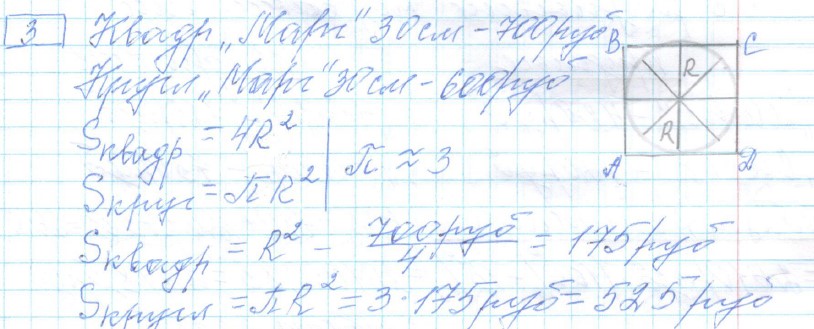 3 Квадр „Марг“ 30 см – 700 руб
Кругл „Марг“ 30 см – 600 руб
B C
R
R
A D
Sквадр = 4R²
Sкруг = πR² | π ≈ 3
Sквадр = R² – 700 руб / 4 = 175 руб
Sкругл = πR² = 3 · 175 руб = 525 руб